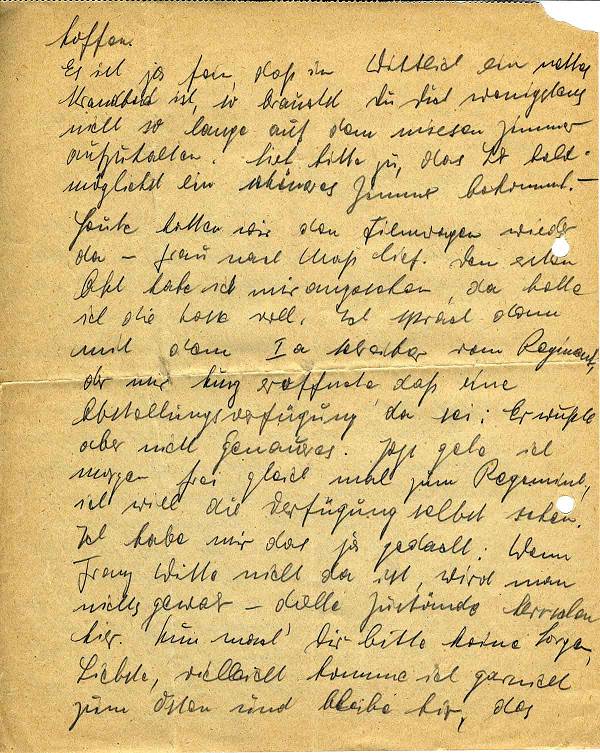 hoffen.
Es ist ja fein, daß in Wittlich ein nettes
Strandbad ist, so brauchst Du Dich wenigstens
nicht so lange auf dem miesen Zimmer
aufzuhalten. Sieh bitte zu, das Ihr bald-
möglichst ein schöneres Zimmer bekommt. –
Heute hatten wir den Filmwagen wieder
da – Frau nach Maß lief. Den ersten
Akt habe ich mir angesehen, da hatte
ich die Nase voll. Ich sprach dann
mit dem Ia Schreiber vom Regiment,
der mir kurz eröffnete daß eine
Abstellungsverfügung da sei; Er wußte
aber nicht Genaueres. Jetzt gehe ich
morgen frei gleich mal zum Regiment,
ich will die Verfügung selbst sehen.
Ich habe mir das ja gedacht: Wenn
Franz Witte nicht da ist, wird man
nichts gewahr – dolle Zustände herrschen
hier. Nun mach' Dir bitte keine Sorgen,
Liebste, vielleicht komme ich garnicht
zum Osten und bleibe hier, das